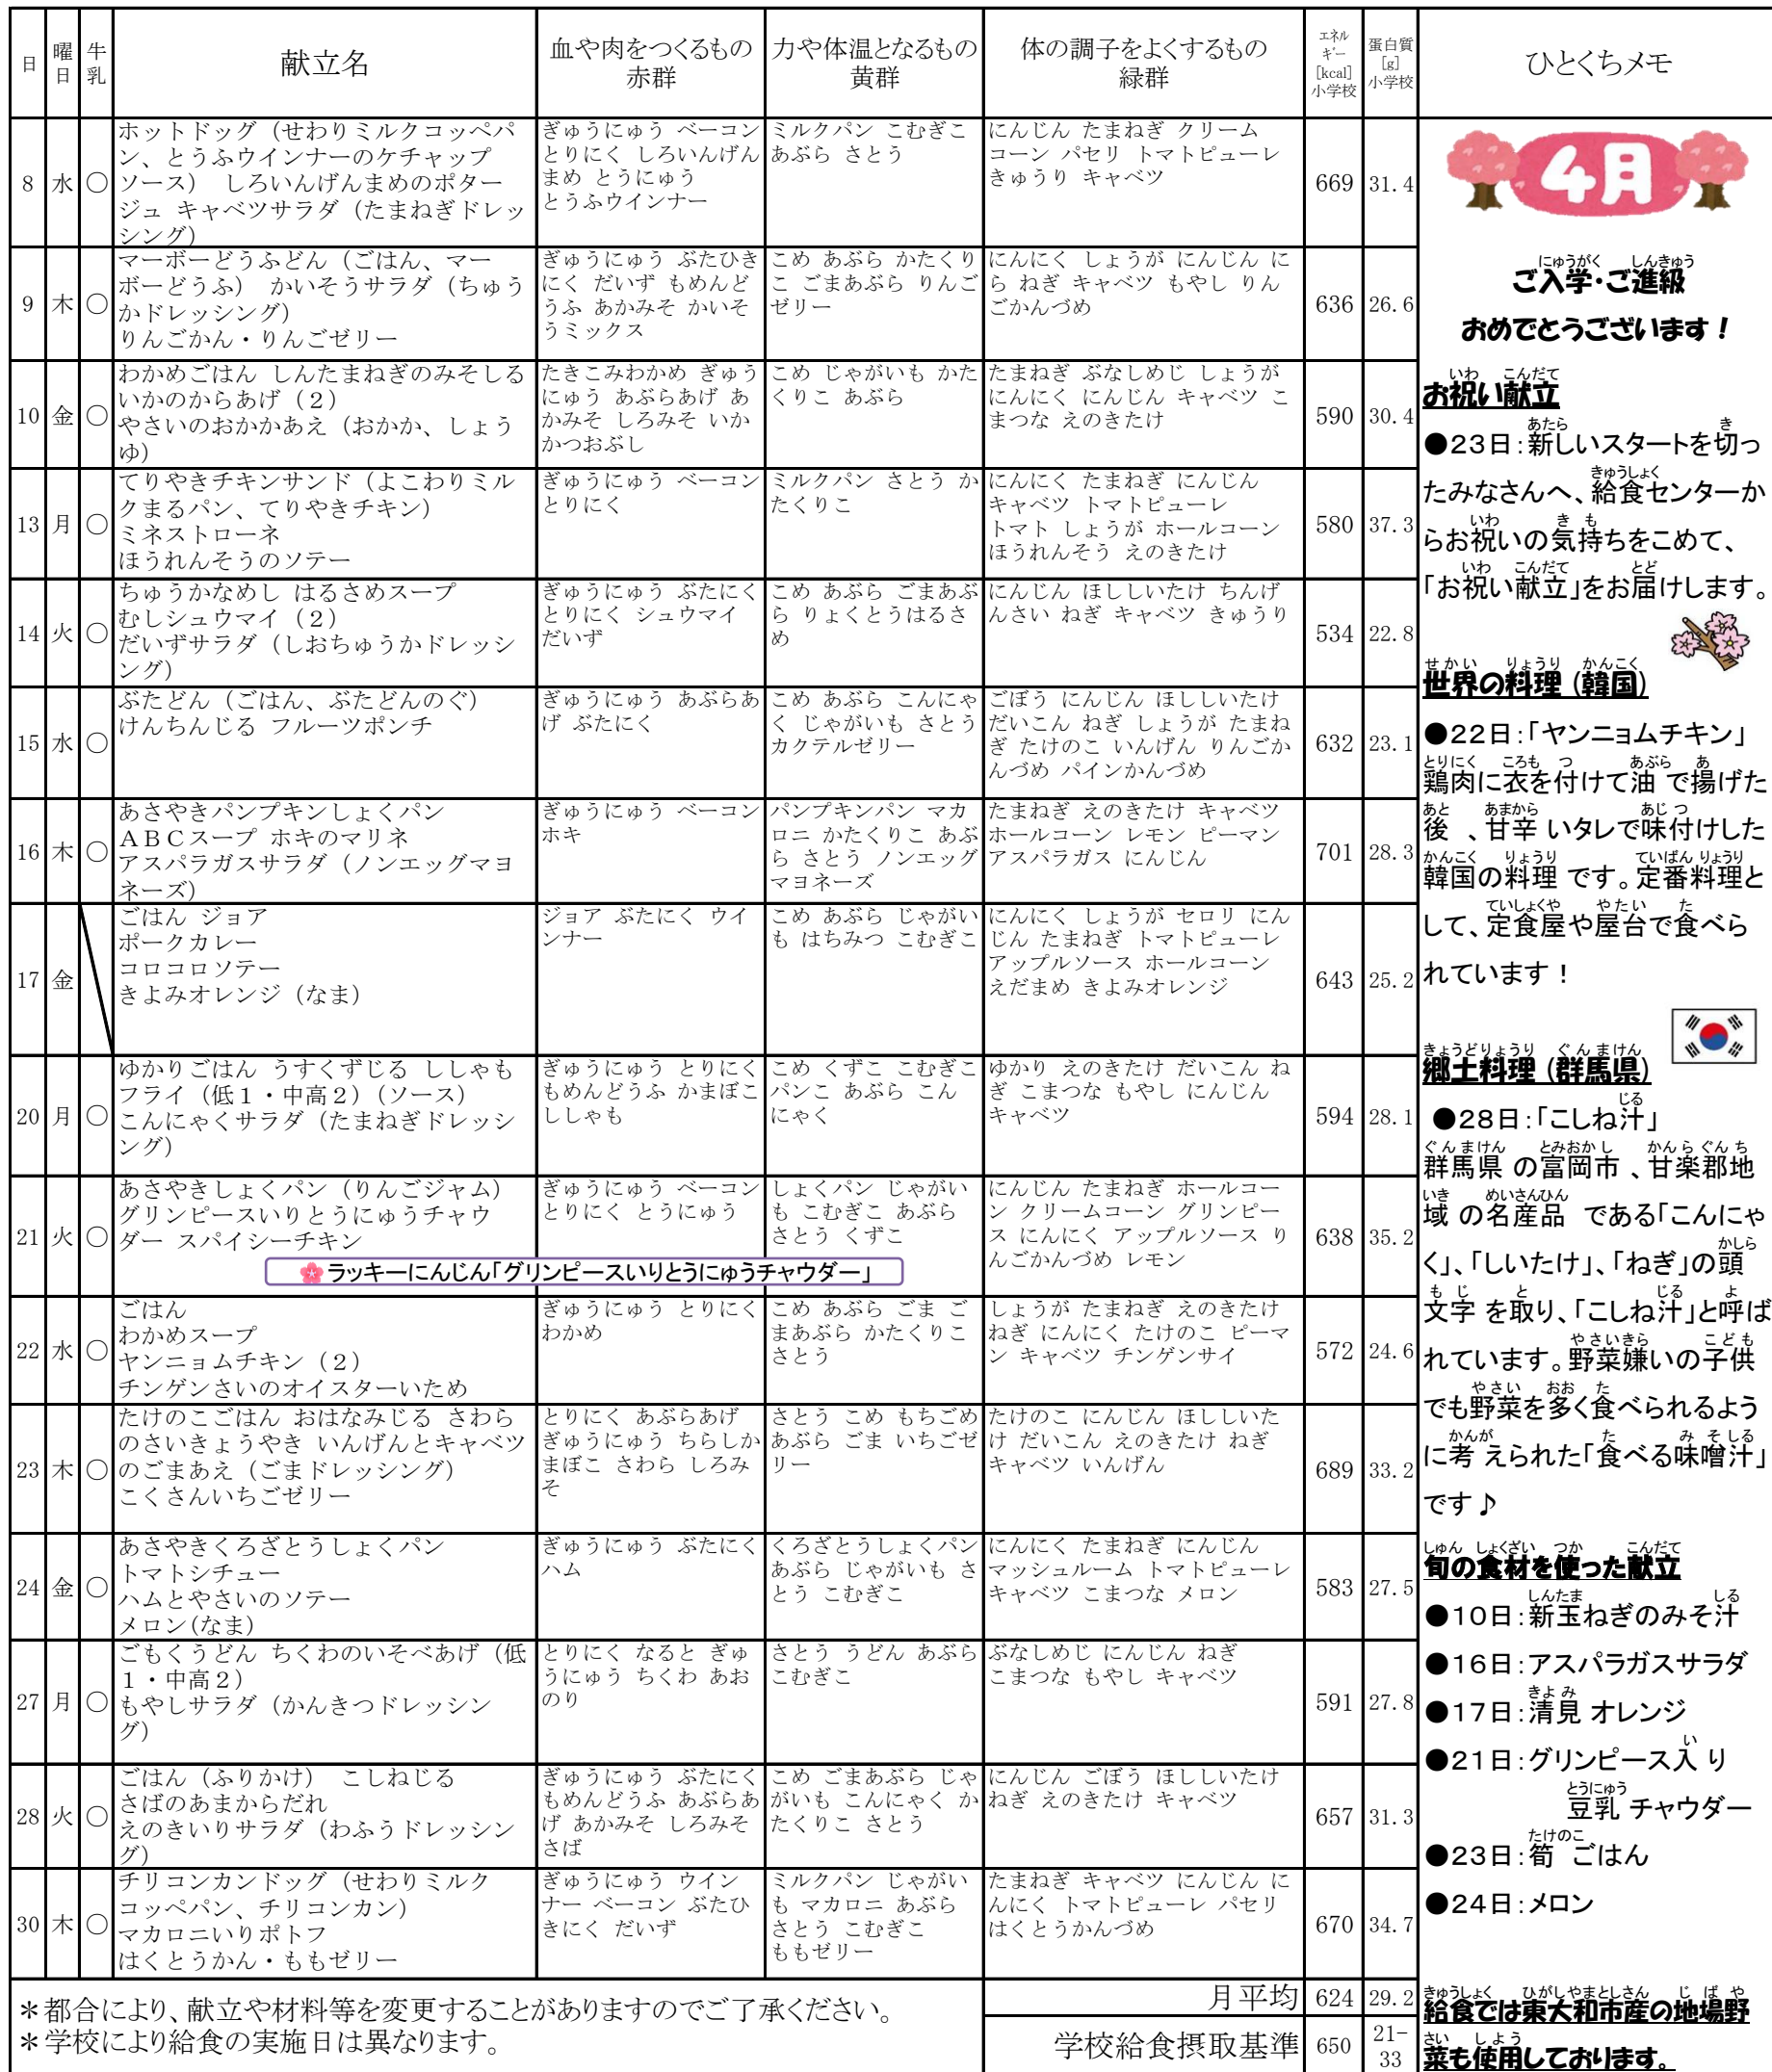 日 曜日 牛乳 献立名 血や肉をつくるもの 赤群 力や体温となるもの 黄群 体の調子をよくするもの 緑群 エネルギー [kcal] 小学校 蛋白質 [g] 小学校 ひとくちメモ
8 水 ○
ホットドッグ（せわりミルクコッペパ
ン、とうふウインナーのケチャップ
ソース） しろいんげんまめのポター
ジュ キャベツサラダ（たまねぎドレッ
シング）
ぎゅうにゅう ベーコン
とりにく しろいんげん
まめ とうにゅう
とうふウインナー
ミルクパン こむぎこ
あぶら さとう
にんじん たまねぎ クリーム
コーン パセリ トマトピューレ
きゅうり キャベツ
669 31.4
9 木 ○
マーボーどうふどん（ごはん、マー
ボーどうふ） かいそうサラダ（ちゅう
かドレッシング）
りんごかん・りんごゼリー
ぎゅうにゅう ぶたひき
にく だいず もめんど
うふ あかみそ かいそ
うミックス
こめ あぶら かたくり
こ ごまあぶら りんご
ゼリー
にんにく しょうが にんじん に
ら ねぎ キャベツ もやし りん
ごかんづめ
636 26.6
10 金 ○
わかめごはん しんたまねぎのみそしる
いかのからあげ（２）
やさいのおかかあえ（おかか、しょう
ゆ）
たきこみわかめ ぎゅう
にゅう あぶらあげ あ
かみそ しろみそ いか
かつおぶし
こめ じゃがいも かた
くりこ あぶら
たまねぎ ぶなしめじ しょうが
にんにく にんじん キャベツ こ
まつな えのきたけ
590 30.4
13 月 ○
てりやきチキンサンド（よこわりミル
クまるパン、てりやきチキン）
ミネストローネ
ほうれんそうのソテー
ぎゅうにゅう ベーコン
とりにく
ミルクパン さとう か
たくりこ
にんにく たまねぎ にんじん
キャベツ トマトピューレ
トマト しょうが ホールコーン
ほうれんそう えのきたけ
580 37.3
14 火 ○
ちゅうかなめし はるさめスープ
むしシュウマイ（２）
だいずサラダ（しおちゅうかドレッシ
ング）
ぎゅうにゅう ぶたにく
とりにく シュウマイ
だいず
こめ あぶら ごまあぶ
ら りょくとうはるさ
め
にんじん ほししいたけ ちんげ
んさい ねぎ キャベツ きゅうり
534 22.8
15 水 ○
ぶたどん（ごはん、ぶたどんのぐ）
けんちんじる フルーツポンチ
ぎゅうにゅう あぶらあ
げ ぶたにく
こめ あぶら こんにゃ
く じゃがいも さとう
カクテルゼリー
ごぼう にんじん ほししいたけ
だいこん ねぎ しょうが たまね
ぎ たけのこ いんげん りんごか
んづめ パインかんづめ
632 23.1
16 木 ○
あさやきパンプキンしょくパン
ＡＢＣスープ ホキのマリネ
アスパラガスサラダ（ノンエッグマヨ
ネーズ）
ぎゅうにゅう ベーコン
ホキ
パンプキンパン マカ
ロニ かたくりこ あぶ
ら さとう ノンエッグ
マヨネーズ
たまねぎ えのきたけ キャベツ
ホールコーン レモン ピーマン
アスパラガス にんじん
701 28.3
17 金
ごはん ジョア
ポークカレー
コロコロソテー
きよみオレンジ（なま）
ジョア ぶたにく ウイ
ンナー
こめ あぶら じゃがい
も はちみつ こむぎこ
にんにく しょうが セロリ にん
じん たまねぎ トマトピューレ
アップルソース ホールコーン
えだまめ きよみオレンジ
643 25.2
20 月 ○
ゆかりごはん うすくずじる ししゃも
フライ（低１・中高２）（ソース）
こんにゃくサラダ（たまねぎドレッシ
ング）
ぎゅうにゅう とりにく
もめんどうふ かまぼこ
ししゃも
こめ くずこ こむぎこ
パンこ あぶら こん
にゃく
ゆかり えのきたけ だいこん ね
ぎ こまつな もやし にんじん
キャベツ
594 28.1
21 火 ○
あさやきしょくパン（りんごジャム）
グリンピースいりとうにゅうチャウ
ダー スパイシーチキン
ぎゅうにゅう ベーコン
とりにく とうにゅう
しょくパン じゃがい
も こむぎこ あぶら
さとう くずこ
にんじん たまねぎ ホールコー
ン クリームコーン グリンピー
ス にんにく アップルソース り
んごかんづめ レモン
638 35.2
ラッキーにんじん「グリンピースいりとうにゅうチャウダー」
22 水 ○
ごはん
わかめスープ
ヤンニョムチキン（２）
チンゲンさいのオイスターいため
ぎゅうにゅう とりにく
わかめ
こめ あぶら ごま ご
まあぶら かたくりこ
さとう
しょうが たまねぎ えのきたけ
ねぎ にんにく たけのこ ピーマ
ン キャベツ チンゲンサイ
572 24.6
23 木 ○
たけのこごはん おはなみじる さわら
のさいきょうやき いんげんとキャベツ
のごまあえ（ごまドレッシング）
こくさんいちごゼリー
とりにく あぶらあげ
ぎゅうにゅう ちらしか
まぼこ さわら しろみ
そ
さとう こめ もちごめ
あぶら ごま いちごゼ
リー
たけのこ にんじん ほししいた
け だいこん えのきたけ ねぎ
キャベツ いんげん
689 33.2
24 金 ○
あさやきくろざとうしょくパン
トマトシチュー
ハムとやさいのソテー
メロン(なま)
ぎゅうにゅう ぶたにく
ハム
くろざとうしょくパン
あぶら じゃがいも さ
とう こむぎこ
にんにく たまねぎ にんじん
マッシュルーム トマトピューレ
キャベツ こまつな メロン
583 27.5
27 月 ○
ごもくうどん ちくわのいそべあげ（低
１・中高２）
もやしサラダ（かんきつドレッシン
グ）
とりにく なると ぎゅ
うにゅう ちくわ あお
のり
さとう うどん あぶら
こむぎこ
ぶなしめじ にんじん ねぎ
こまつな もやし キャベツ
591 27.8
28 火 ○
ごはん（ふりかけ） こしねじる
さばのあまからだれ
えのきいりサラダ（わふうドレッシン
グ）
ぎゅうにゅう ぶたにく
もめんどうふ あぶらあ
げ あかみそ しろみそ
さば
こめ ごまあぶら じゃ
がいも こんにゃく か
たくりこ さとう
にんじん ごぼう ほししいたけ
ねぎ えのきたけ キャベツ
657 31.3
30 木 ○
チリコンカンドッグ（せわりミルク
コッペパン、チリコンカン）
マカロニいりポトフ
はくとうかん・ももゼリー
ぎゅうにゅう ウイン
ナー ベーコン ぶたひ
きにく だいず
ミルクパン じゃがい
も マカロニ あぶら
さとう こむぎこ
ももゼリー
たまねぎ キャベツ にんじん に
んにく トマトピューレ パセリ
はくとうかんづめ
670 34.7
＊都合により、献立や材料等を変更することがありますのでご了承ください。
＊学校により給食の実施日は異なります。
月平均 624 29.2
学校給食摂取基準 650 21-33
4月
にゅうがく しんきゅう
ご入学・ご進級
おめでとうございます！
いわ こんだて
お祝い献立
あたら き
●23日：新しいスタートを切っ
きゅうしょく
たみなさんへ、給食センターか
いわ きも
らお祝いの気持ちをこめて、
いわ こんだて とど
「お祝い献立」をお届けします。
せかい りょうり かんこく
世界の料理（韓国）
●22日：「ヤンニョムチキン」
とりにく ころも つ あぶら あ
鶏肉に衣を付けて油で揚げた
あと あまから あじつ
後、甘辛いタレで味付けした
かんこく りょうり ていばんりょうり
韓国の料理です。定番料理と
ていしょくや やたい た
して、定食屋や屋台で食べら
れています！
きょうどりょうり ぐんまけん
郷土料理（群馬県）
じる
●28日：「こしね汁」
ぐんまけん とみおかし かんらぐんち
群馬県の富岡市、甘楽郡地
いき めいさんひん
域の名産品である「こんにゃ
かしら
く」、「しいたけ」、「ねぎ」の頭
もじ と じる よ
文字を取り、「こしね汁」と呼ば
やさいきら こども
れています。野菜嫌いの子供
やさい おお た
でも野菜を多く食べられるよう
かんが た みそしる
に考えられた「食べる味噌汁」
です♪
しゅん しょくざい つか こんだて
旬の食材を使った献立
しんたま しる
●10日：新玉ねぎのみそ汁
●16日：アスパラガスサラダ
きよみ
●17日：清見オレンジ
い
●21日：グリンピース入り
とうにゅう
豆乳チャウダー
たけのこ
●23日：筍ごはん
●24日：メロン
きゅうしょく ひがしやまとしさん じばや
給食では東大和市産の地場野
さい しよう
菜も使用しております。